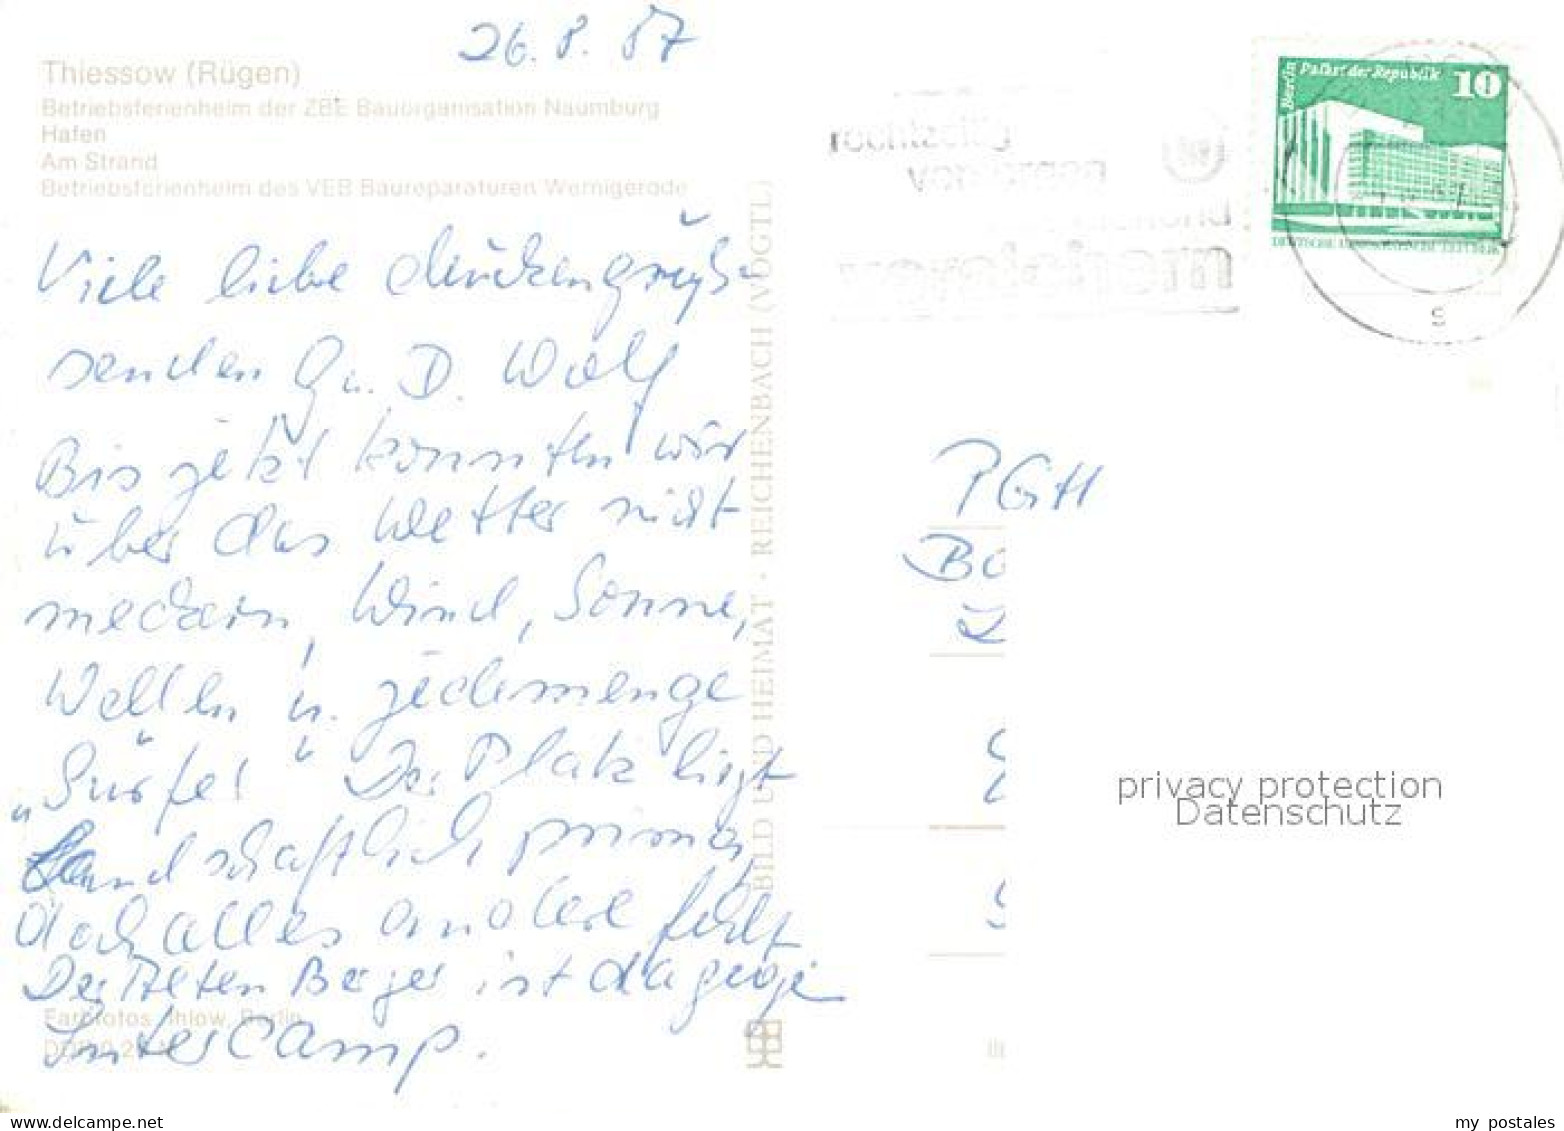 26. 8. 87
Thiessow (Rügen)
Betriebsferienheim der ZBE Bauorganisation Naumburg
Hafen
Am Strand
Betriebsferienheim des VEB Baureparaturen Wernigerode
Viele liebe
senden G u. D. Wolf
Bis jetzt konnten wir
über das Wetter nicht
meckern, Wind, Sonne,
Wellen u. jedemenge
„Surfer" Der Platz liegt
landschaftlich prima,
doch alles andere fehlt
Der Alten Berger ist dagege
InterCamp.
Farbfotos: Ihlow, Berlin
BILD UND HEIMAT · REICHENBACH (VOGTL)
Berlin Palast der Republik 10
DEUTSCHE DEMOKRATISCHE REPUBLIK
PGH
privacy protection
Datenschutz
www.delcampe.net
my_postales